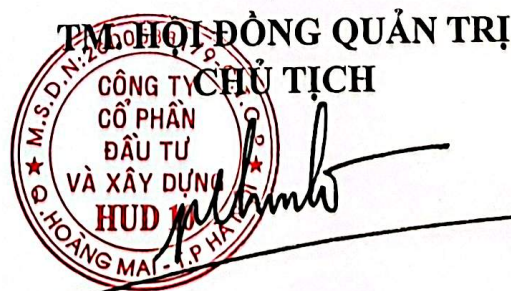 TM. HỘI ĐỒNG QUẢN TRỊ
CHỦ TỊCH
CÔNG TY
CỔ PHẦN
ĐẦU TƯ
VÀ XÂY DỰNG
HUD 10
Q. HOÀNG MAI - T.P HÀ NỘI